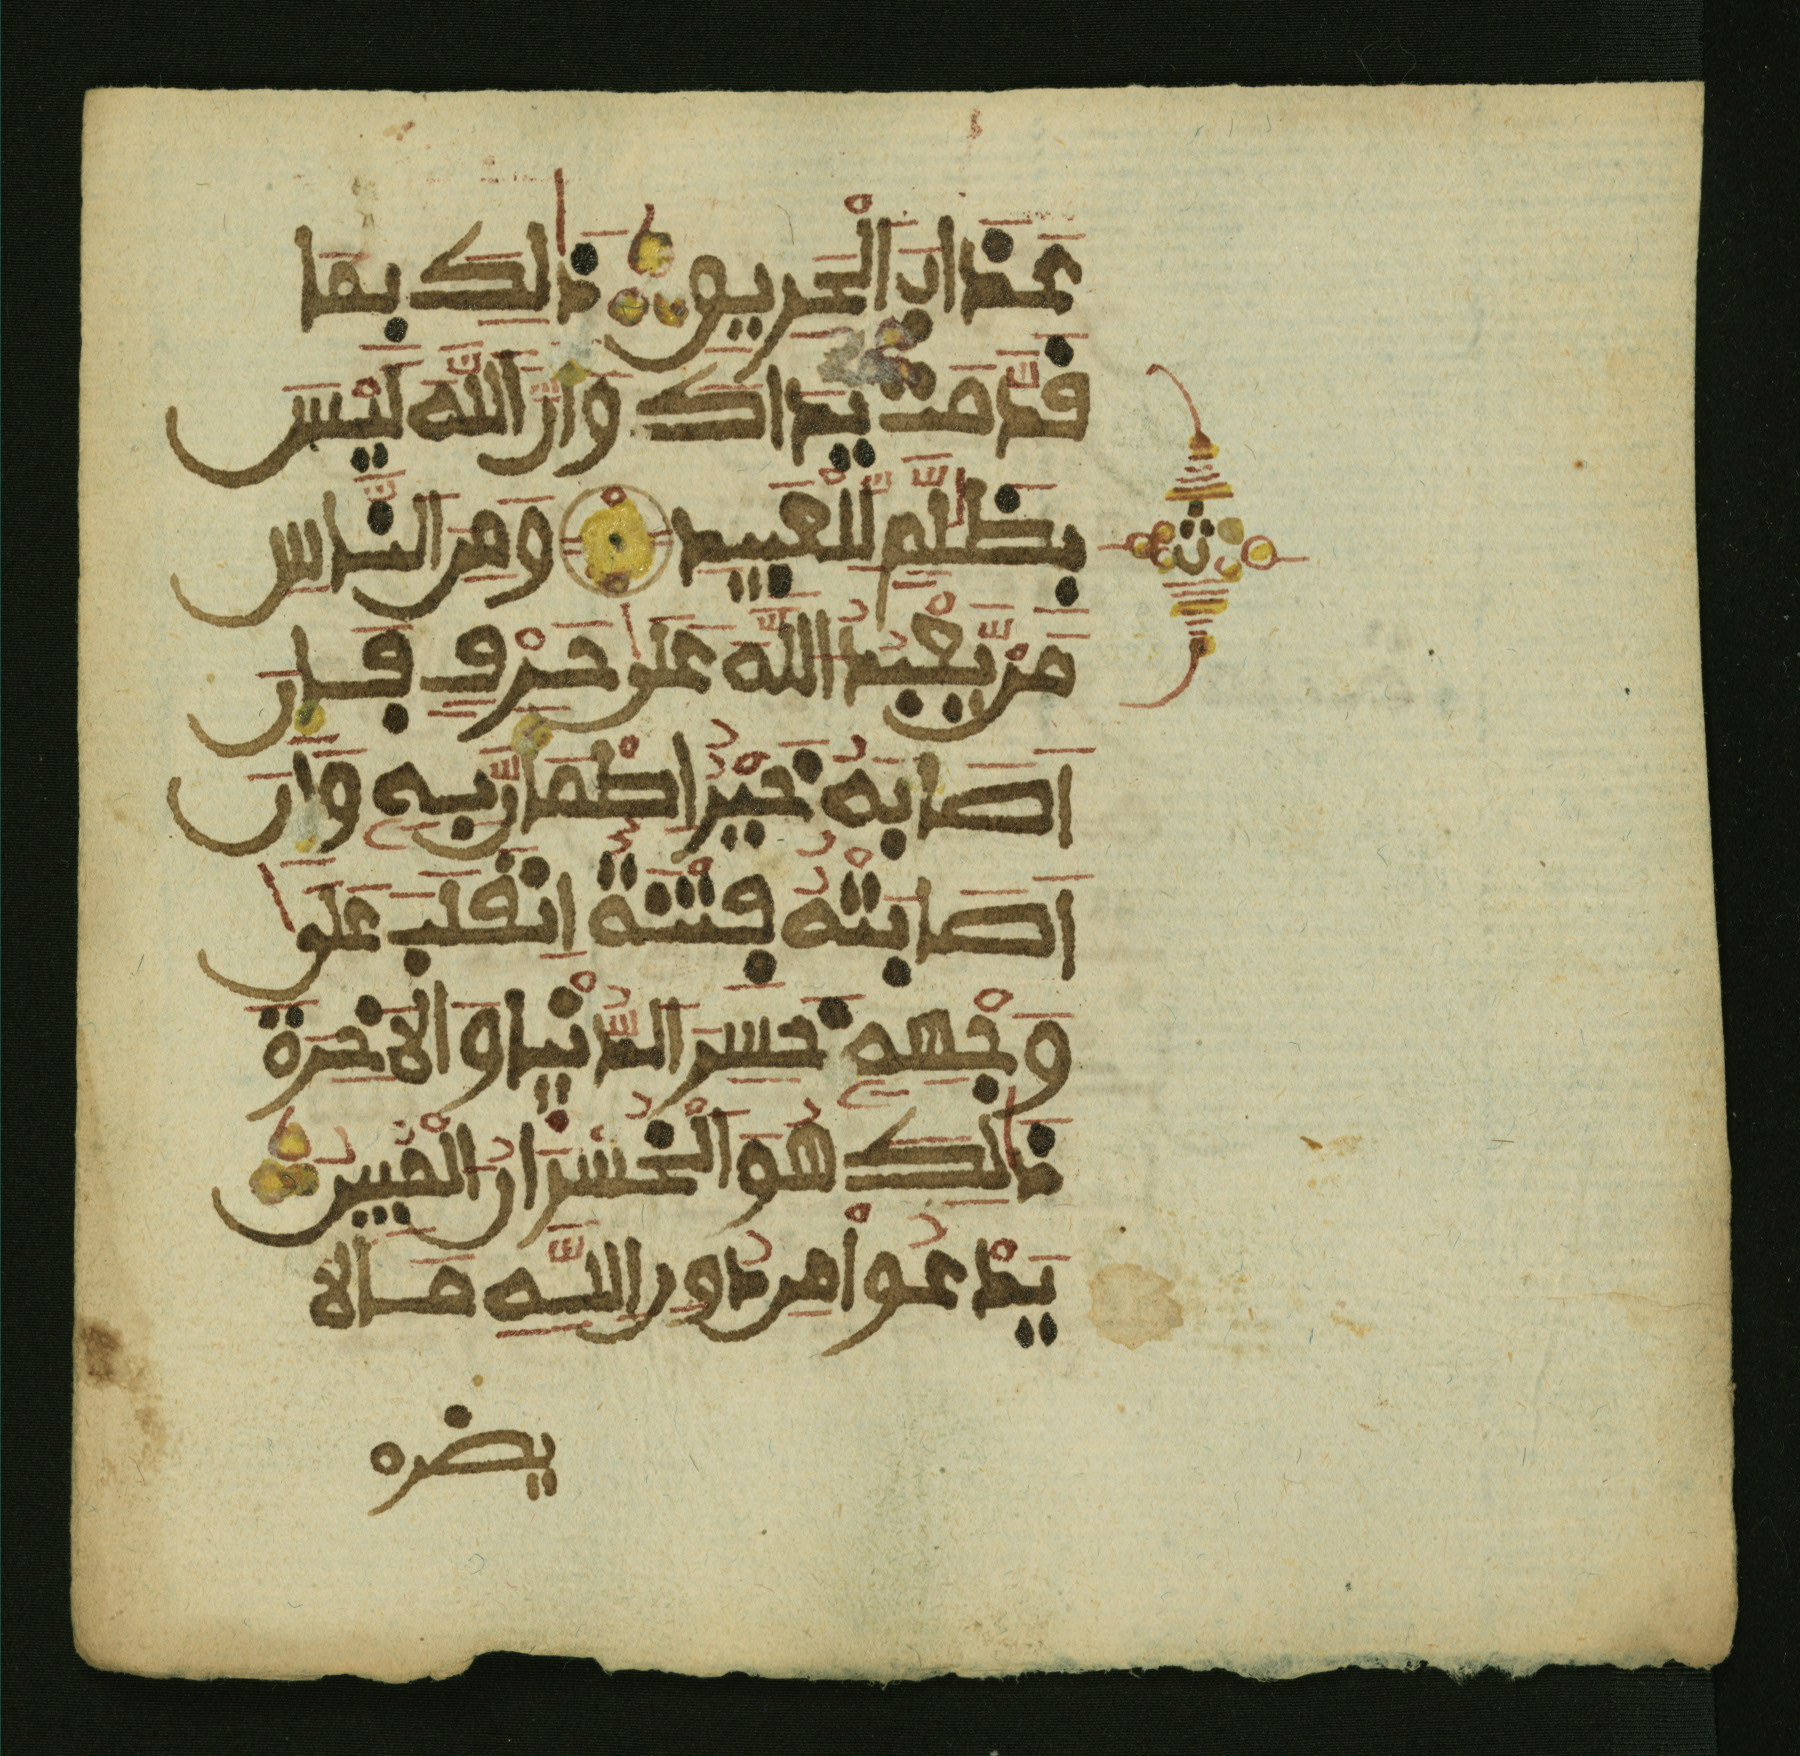 عَذَابَ ٱلْحَرِيقِ ذَٰلِكَ بِمَا
قَدَّمَتْ يَدَاكَ وَأَنَّ ٱللَّهَ لَيْسَ
بِظَلَّٰمٍ لِّلْعَبِيدِ وَمِنَ ٱلنَّاسِ
مَنْ يَّعْبُدُ ٱللَّهَ عَلَىٰ حَرْفٍ فَإِنْ
أَصَابَهُۥ خَيْرٌ ٱطْمَأَنَّ بِهِۦ وَإِنْ
أَصَابَتْهُ فِتْنَةٌ ٱنقَلَبَ عَلَىٰ
وَجْهِهِۦ خَسِرَ ٱلدُّنْيَا وَٱلْأَخِرَةَ
ذَٰلِكَ هُوَ ٱلْخُسْرَانُ ٱلْمُبِينُ
يَدْعُواْ مِن دُونِ ٱللَّهِ مَا لَا
يضره
ن